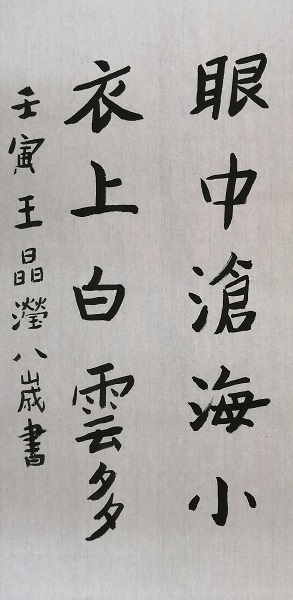 眼中滄海小
衣上白雲多
壬寅王晶瀅八歲書